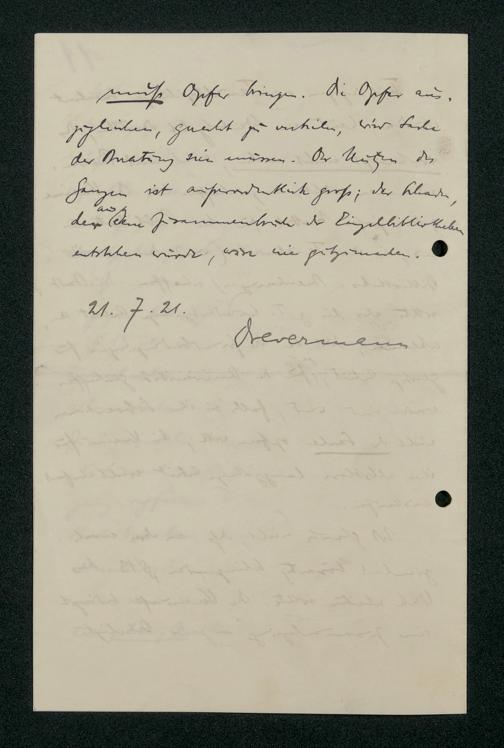 muß Opfer bringen. Die Opfer aus-
zugleichen, gerecht zu verteilen, wird Sache
der Beratung sein müssen. Der Nutzen des
Ganzen ist außerordentlich groß; der Schaden,
der aus dem Zusammenbruch der Einzelbibliotheken
entstehen würde, wäre nie gutzumachen.
21. 7. 21.
Drevermann